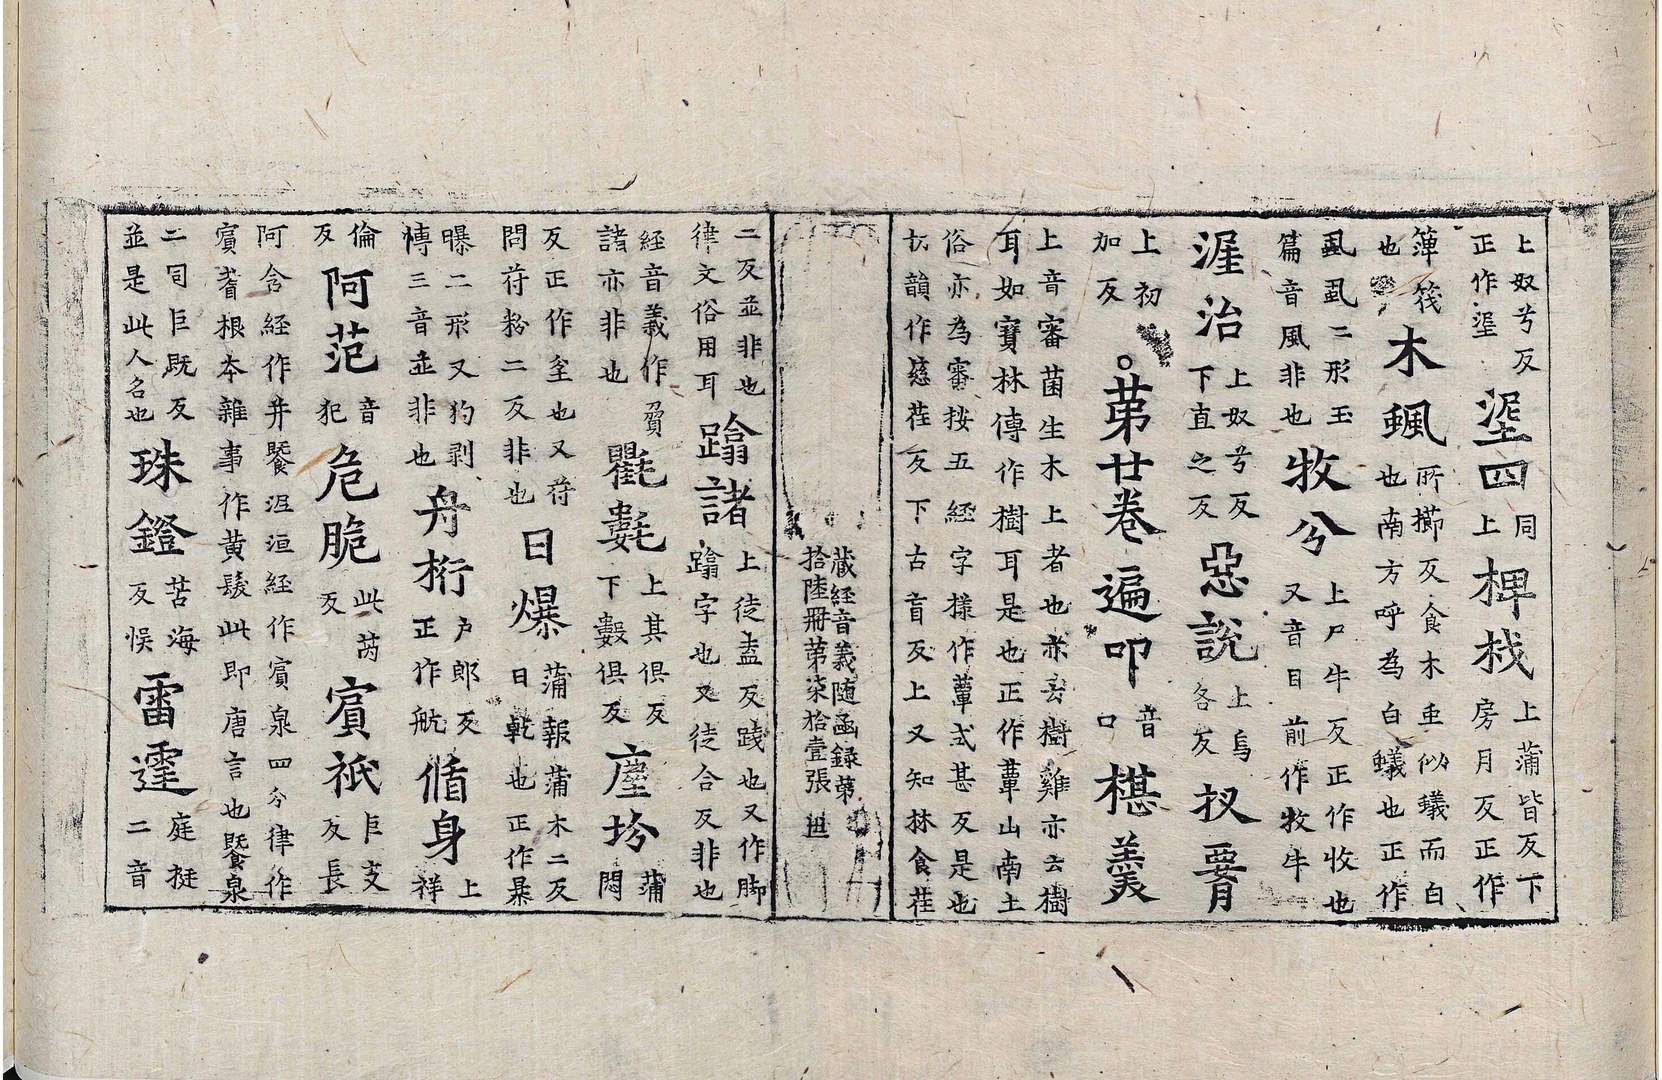 上奴兮反
正作埿
埿四
同上
椑栰
上蒲皆反下
房月反正作
簰筏
也
木䬃
所櫛反食木虫似蟻而白
也南方呼為白蟻也正作
虱虱二形玉
篇音風非也
牧兮
上尸牛反正作收也
又音目前作牧牛
渥治
上奴兮反
下直之反
惡說
上烏
各反
扠要月
上初
加反
○苐廿卷
遍叩
音口
椹羨
上音審菌生木上者也亦云樹雞亦云樹
耳如寶林傳作樹耳是也正作蕈山南土
俗亦為審按五經字樣作蕈式甚反是也
切韻作慈荏反下古盲反上又知林食荏
藏經音義隨函錄第
拾陸冊第柒拾壹張 䒟
二反並非也
律文俗用耳
蹹諸
上徒盍反踐也又作脚
蹹字也又徒合反非也
經音義作𣯫
諸亦非也
氍㲣
上其俱反
下數俱反
塵坋
蒲悶
反正作坌也又苻
問苻粉二反非也
日爆
蒲報蒲木二反
日乾也正作㬥
曝二形又豹剥
愽三音並非也
舟桁
户郎反
正作航
循身
上祥
倫反
阿范
音犯
危脆
此芮反
賔祇
巨支反長
阿含經作井䁬沮洹經作賔泉四分律作
賔耆根本雜事作黃髮此即唐言也䁬泉
二同巨既反
並是此人名也
珠鐙
苦海反悮
雷霆
庭挺二音